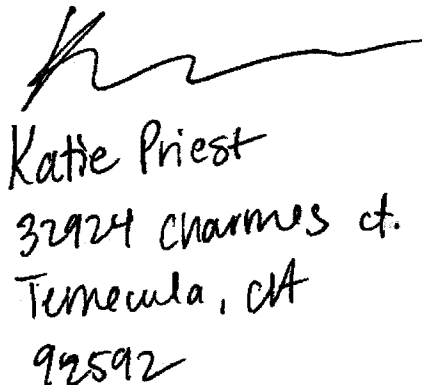 Katie Priest
32924 Charmes ct.
Temecula, CA
92592